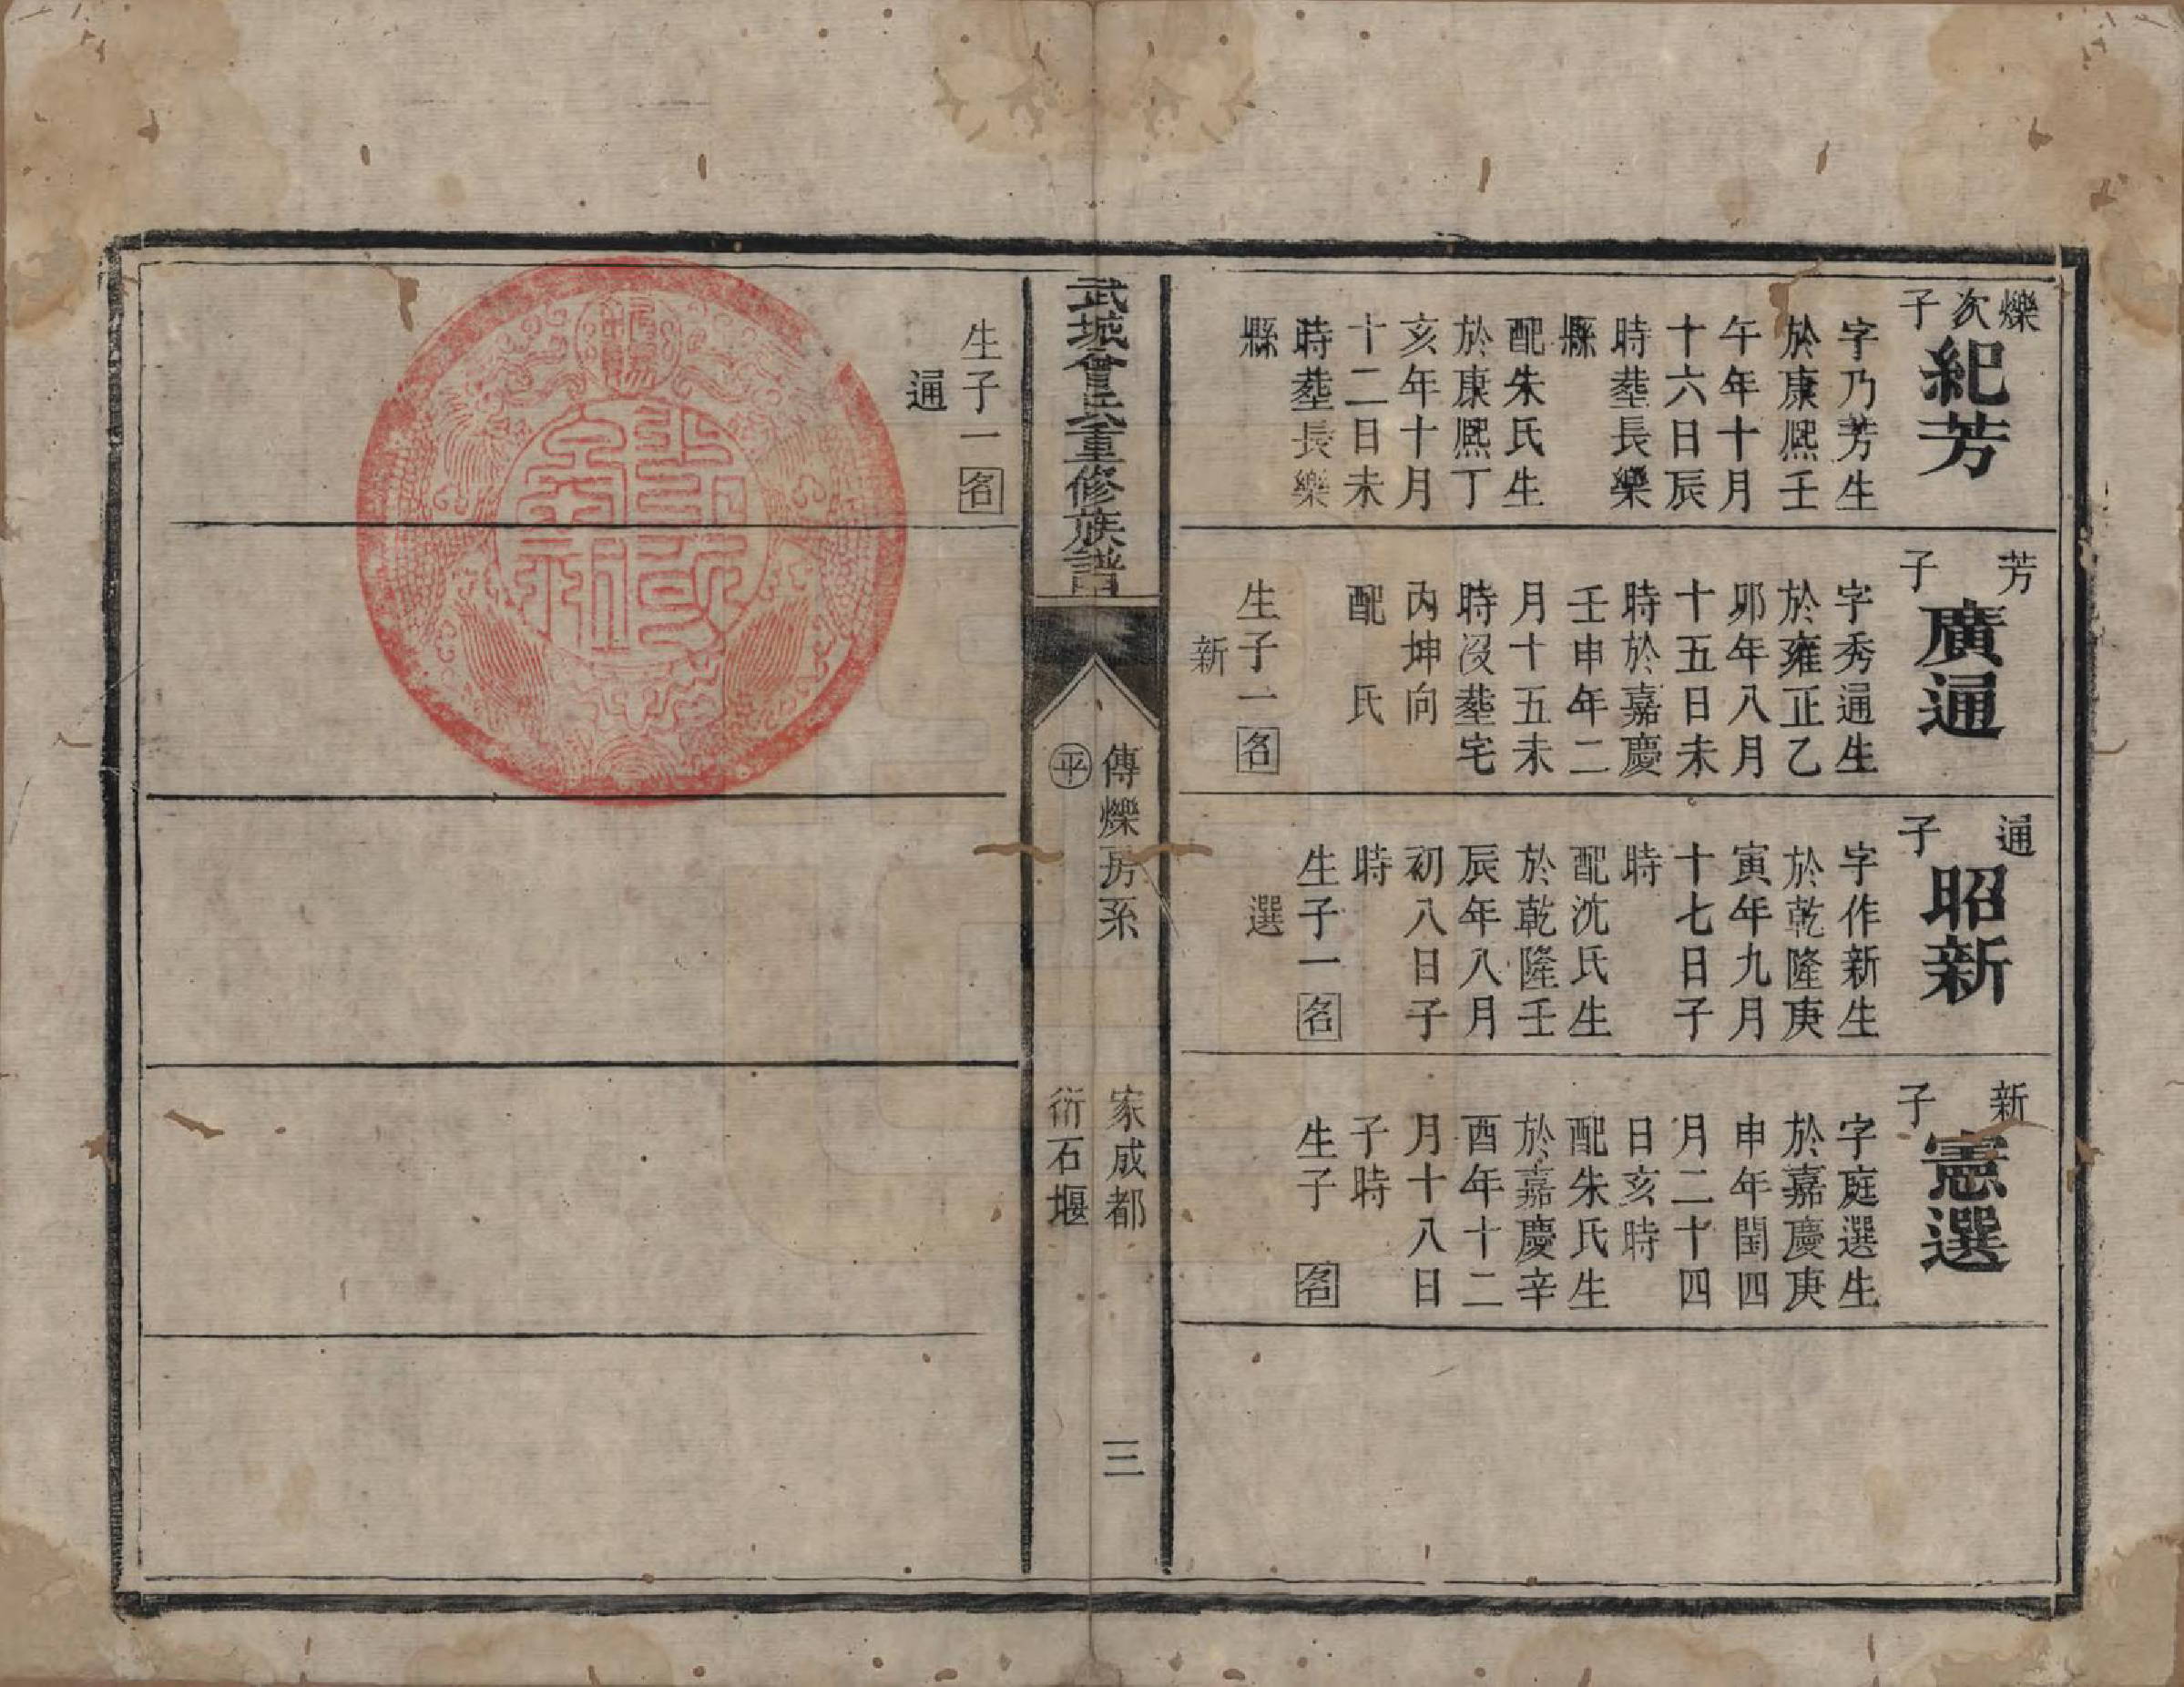 爍次子
紀芳
字乃芳生
於康熈壬
午年十月
十六日辰
時塟長樂
縣
配朱氏生
於康熈丁
亥年十月
十二日未
時塟長樂
縣
芳子
廣通
字秀通生
於雍正乙
夘年八月
十五日未
時於嘉慶
壬申年二
月十五未
時沒塟宅
内坤向
配　氏
生子一名
新
通子
昭新
字作新生
於乾隆庚
寅年九月
十七日子
時
配沈氏生
於乾隆壬
辰年八月
初八日子
時
生子一名
選
新子
憲選
字庭選生
於嘉慶庚
申年閏四
月二十四
日亥時
配朱氏生
於嘉慶辛
酉年十二
月十八日
子時
生子　名
武城曾氏重修族譜
傳爍房系
㊥平
家成都
衍石堰
三
生子一名
通